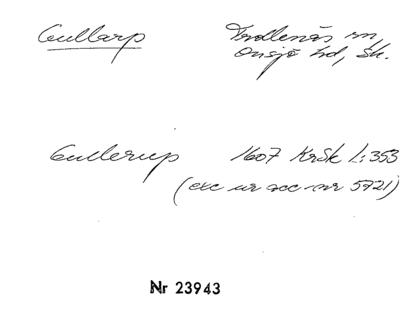 Gullarp Trollenäs sn,
Onsjö hd, Sk.
Gullerup 1607 KrSk L:353
(exc ur acc-nr 5721)
Nr 23943